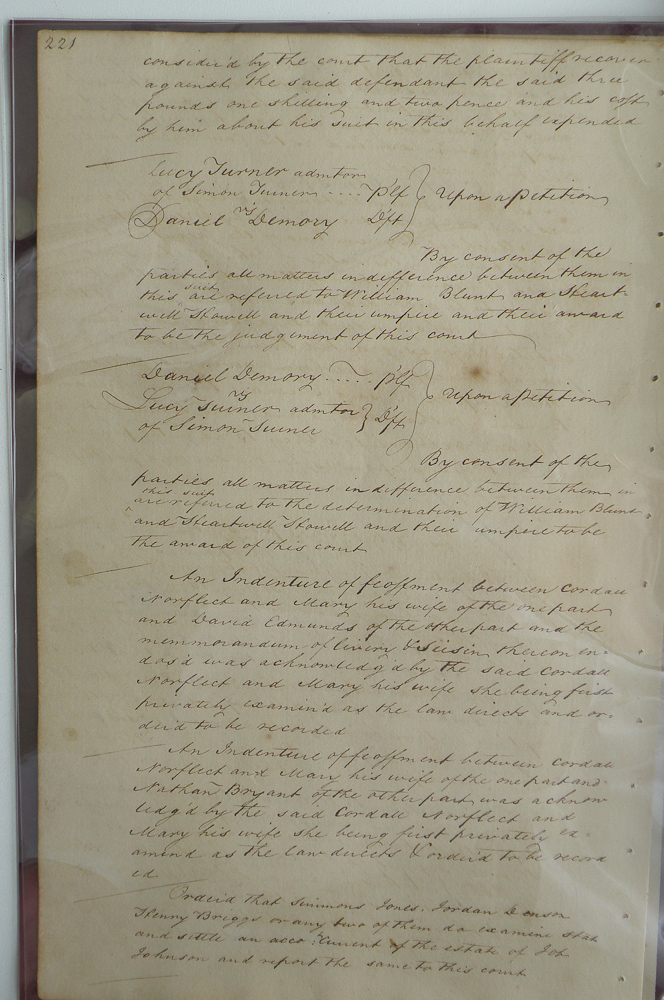 221
considerd by the court that the plaintiff recover
against the said defendant the said three
pounds one shilling and two pence and his cost
by him about his suit in this behalf expended
Lucy Turner admtor
of Simon Turner .... Plf
Upon a Petition
vs
Daniel Demory Dft
By consent of the
parties all matters in difference between them in
this suit are referred to William Blunt and
well Showell and their umpire and their award
to be the judgement of this court
Daniel Demory .... plf
vs
Upon a Petition
Lucy Turner admtor
of Simon Turner
Dft
By consent of the
parties all matters in difference between them in
this suit
are referred to the determination of William Blunt
and Showell and their umpire to be
the award of this court
An Indenture of feoffment between Cordall
Norfleet and Mary his wife of the one part
and David Edmunds of the other part and the
memmorandum of livery & Seisin thereon en-
dos'd was acknowledg'd by the said Cordall
Norfleet and Mary his wife she being first
privately examin'd as the law directs and or-
derd to be recorded
An Indenture of feoffment between Cordall
Norfleet and Mary his wife of the one part and
Nathan Bryant of the other part was acknow
ledg'd by the said Cordall Norfleet and
Mary his wife she being first privately ex-
amind as the law directs & orderd to be record
ed
Orderd that Simmons Jones, Jordan Denson
Henry Briggs or any two of them do examine state
and settle an account of the estate of
Johnson and report the same to this court